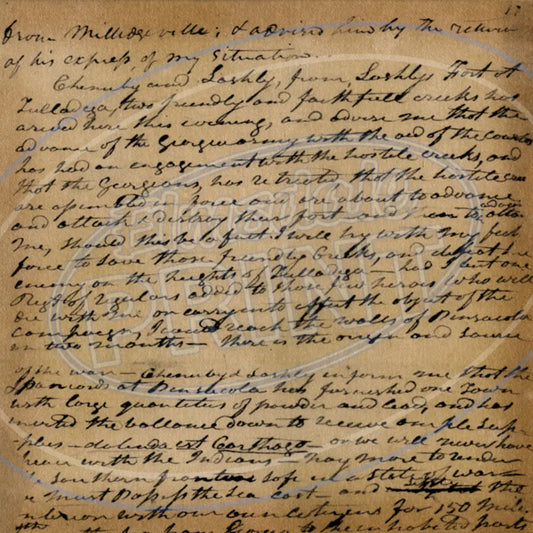 17
from Milledgeville; & advised him by the return
of his express of my Situation.
Chenuby and Lashly, from Lashlys Fort at
Tulladega, two friendly and faithfull creeks has
arived here this evening, and advise me that the
advance of the Georgia army with the aid of the Cowetas
has had an engagement with the hostile creeks, and
that the Georgians, has retreted that the hostile
are assembled in force and are about to advance
and attack & destroy their fort and then to attack
me, Should this be a fact I will try with my
force to save those friendly Creeks, and defeat the
enemy on the heights of Tulladega — had I but one
Regt of regulars added to those few heroes who will
die with me or carry into effect the object of the
Campaign I could reach the walls of Pensacola
in two months — there is the origin and Source
of the war — Chenuby & Lashly inform me that the
Spaniards at Pensacola has furnished one Town
with large quantities of powder and lead, and has
invited the ballance down to receive ample Supp-
plies — delenda est Carthago — or we will never have
peace with the Indians — nay more to render
the Southern frontier safe in a State of war
we must Possess the Sea cost — and the
interion with our own citizens for 150 miles
from Georgia to the inhabited parts
Elusive Info
PRINT